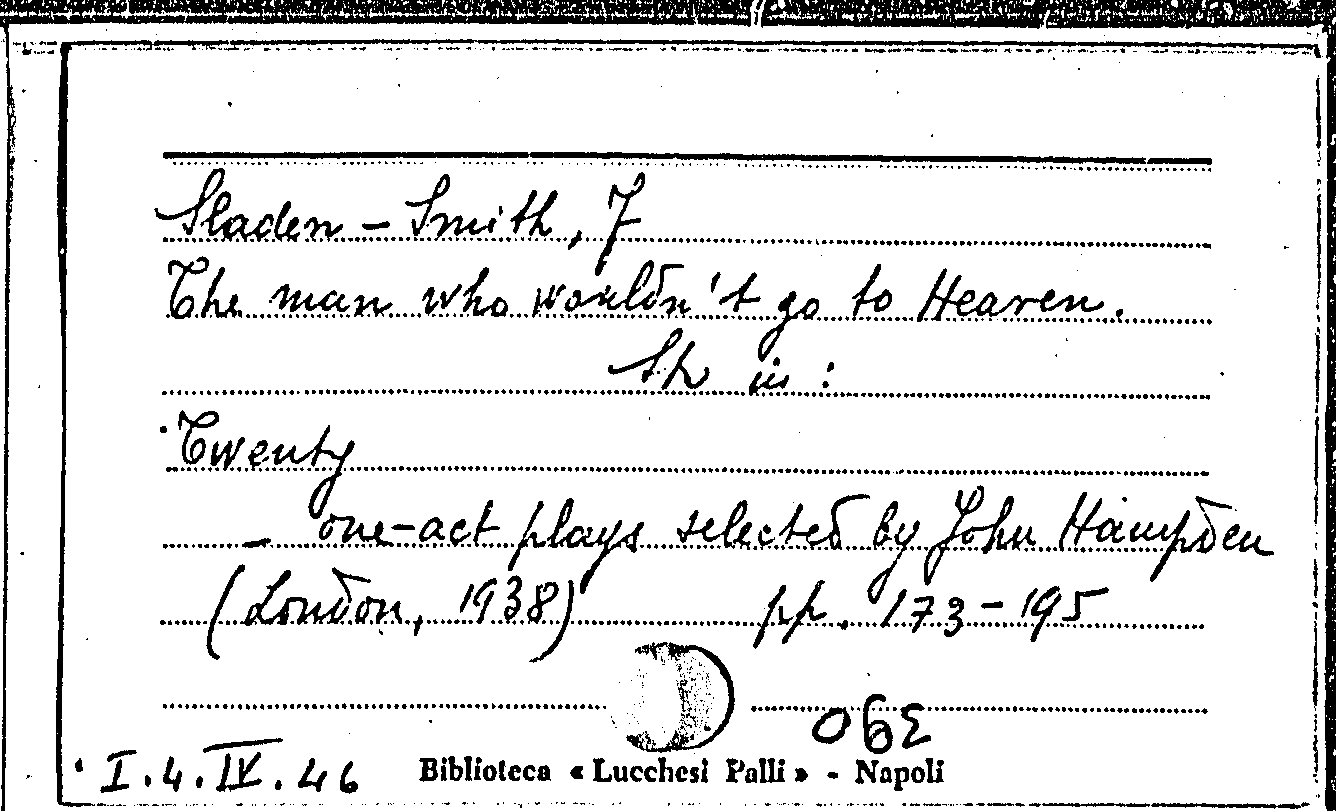 Sladen - Smith, F
The man who wouldn't go to Heaven.
Sta in :
Twenty
- one-act plays selected by John Hampden
(London, 1938) pp. 173-195
390
I.4.IV.46 Biblioteca « Lucchesi Palli » - Napoli